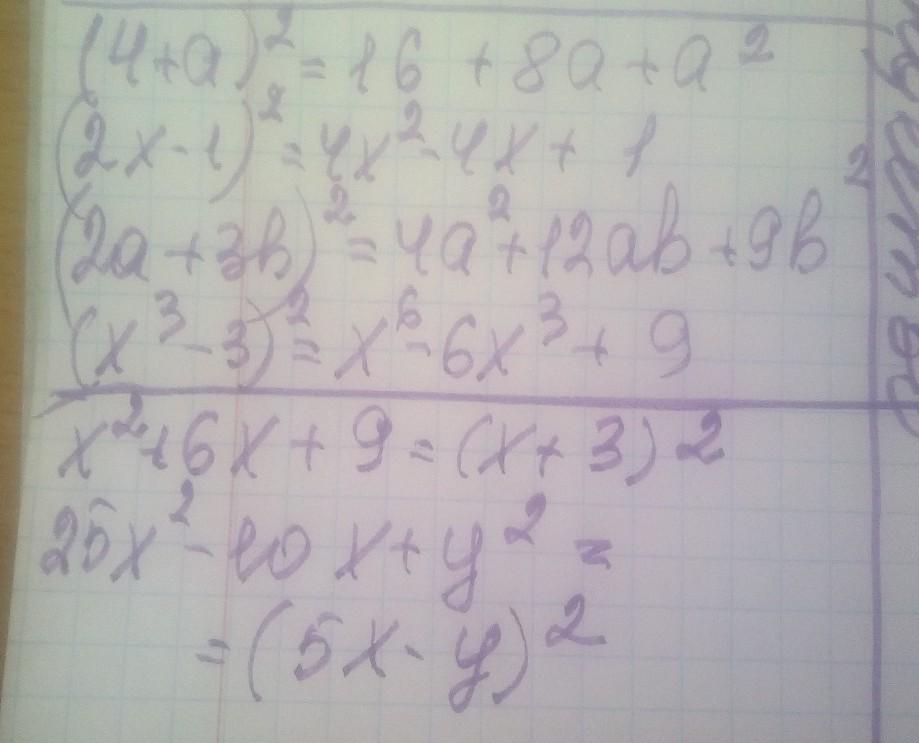 (4+a)² = 16 + 8a + a²
(2x-1)² = 4x² - 4x + 1
(2a + 3b)² = 4a² + 12ab + 9b²
(x³ - 3)² = x⁶ - 6x³ + 9
x² + 6x + 9 = (x + 3)²
25x² - 10x + y² =
= (5x - y)²